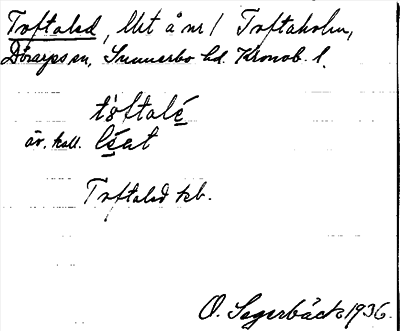 Toftaled, litet å nr 1 Toftaholm,
Dörarps sn, Sunnerbo hd. Kronob. l.
töftalé
äv. kall. léət
Toftaled kb.
O. Sagerbäck 1936.